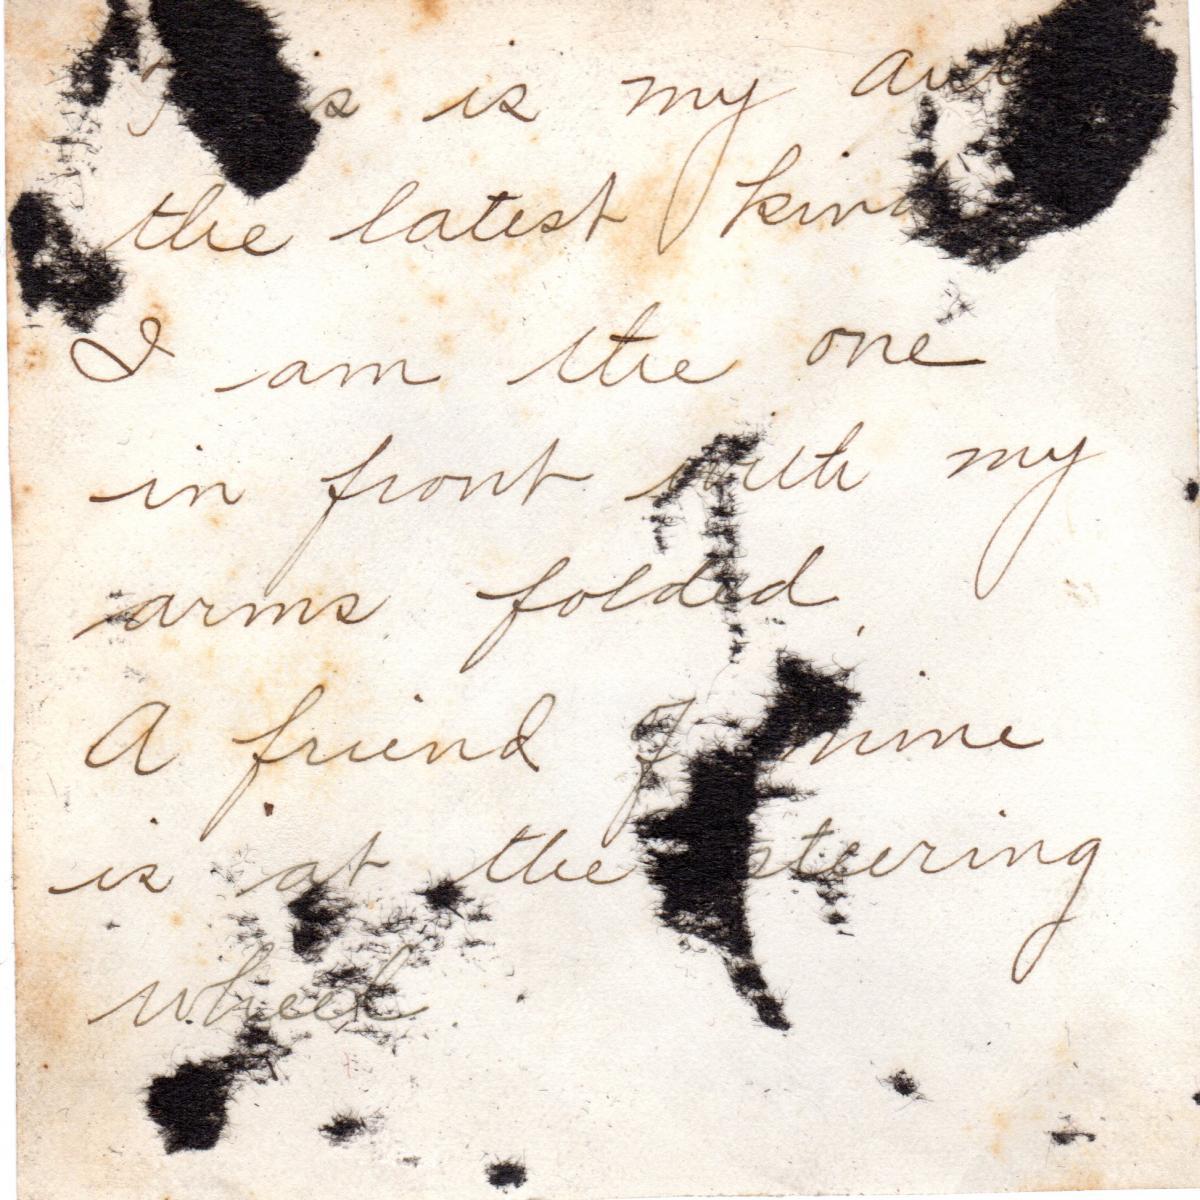 This is my
the latest kind
I am the one
in front with my
arms folded
A friend of mine
is at the steering
wheel